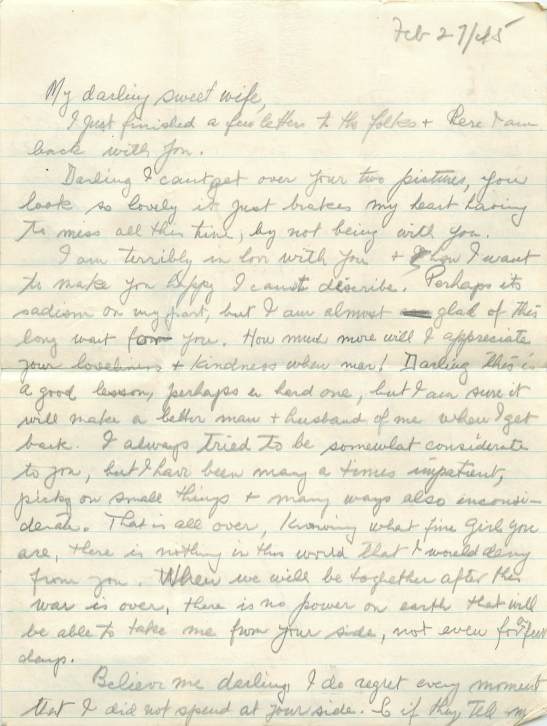 Feb 27/45
My darling sweet wife,
I just finished a few letters to the folks + here I am
back with you.
Darling I can't get over your two pictures, you
look so lovely it just brakes my heart having
to mess all this time, by not being with you.
I am terribly in love with you + how I want
to make you happy I can't discribe. Perhaps its
sadism on my part, but I am almost glad of this
long wait for you. How much more will I appresiate
your loveliness + kindness when near! Darling this is
a good lesson, perhaps a hard one, but I am sure it
will make a better man + husband of me when I get
back. I always tried to be somewhat considerate
to you, but I have been many a times impatient,
picky on small things + many ways also inconsi-
derate. That is all over, knowing what fine girl you
are, there is nothing in this world that I would deny
from you. When we will be togheter after this
war is over, there is no power on earth that will
be able to take me from your side, not even for a few
days.
Believe me darling I do regret every moment
that I did not spend at your side. So if they tell m